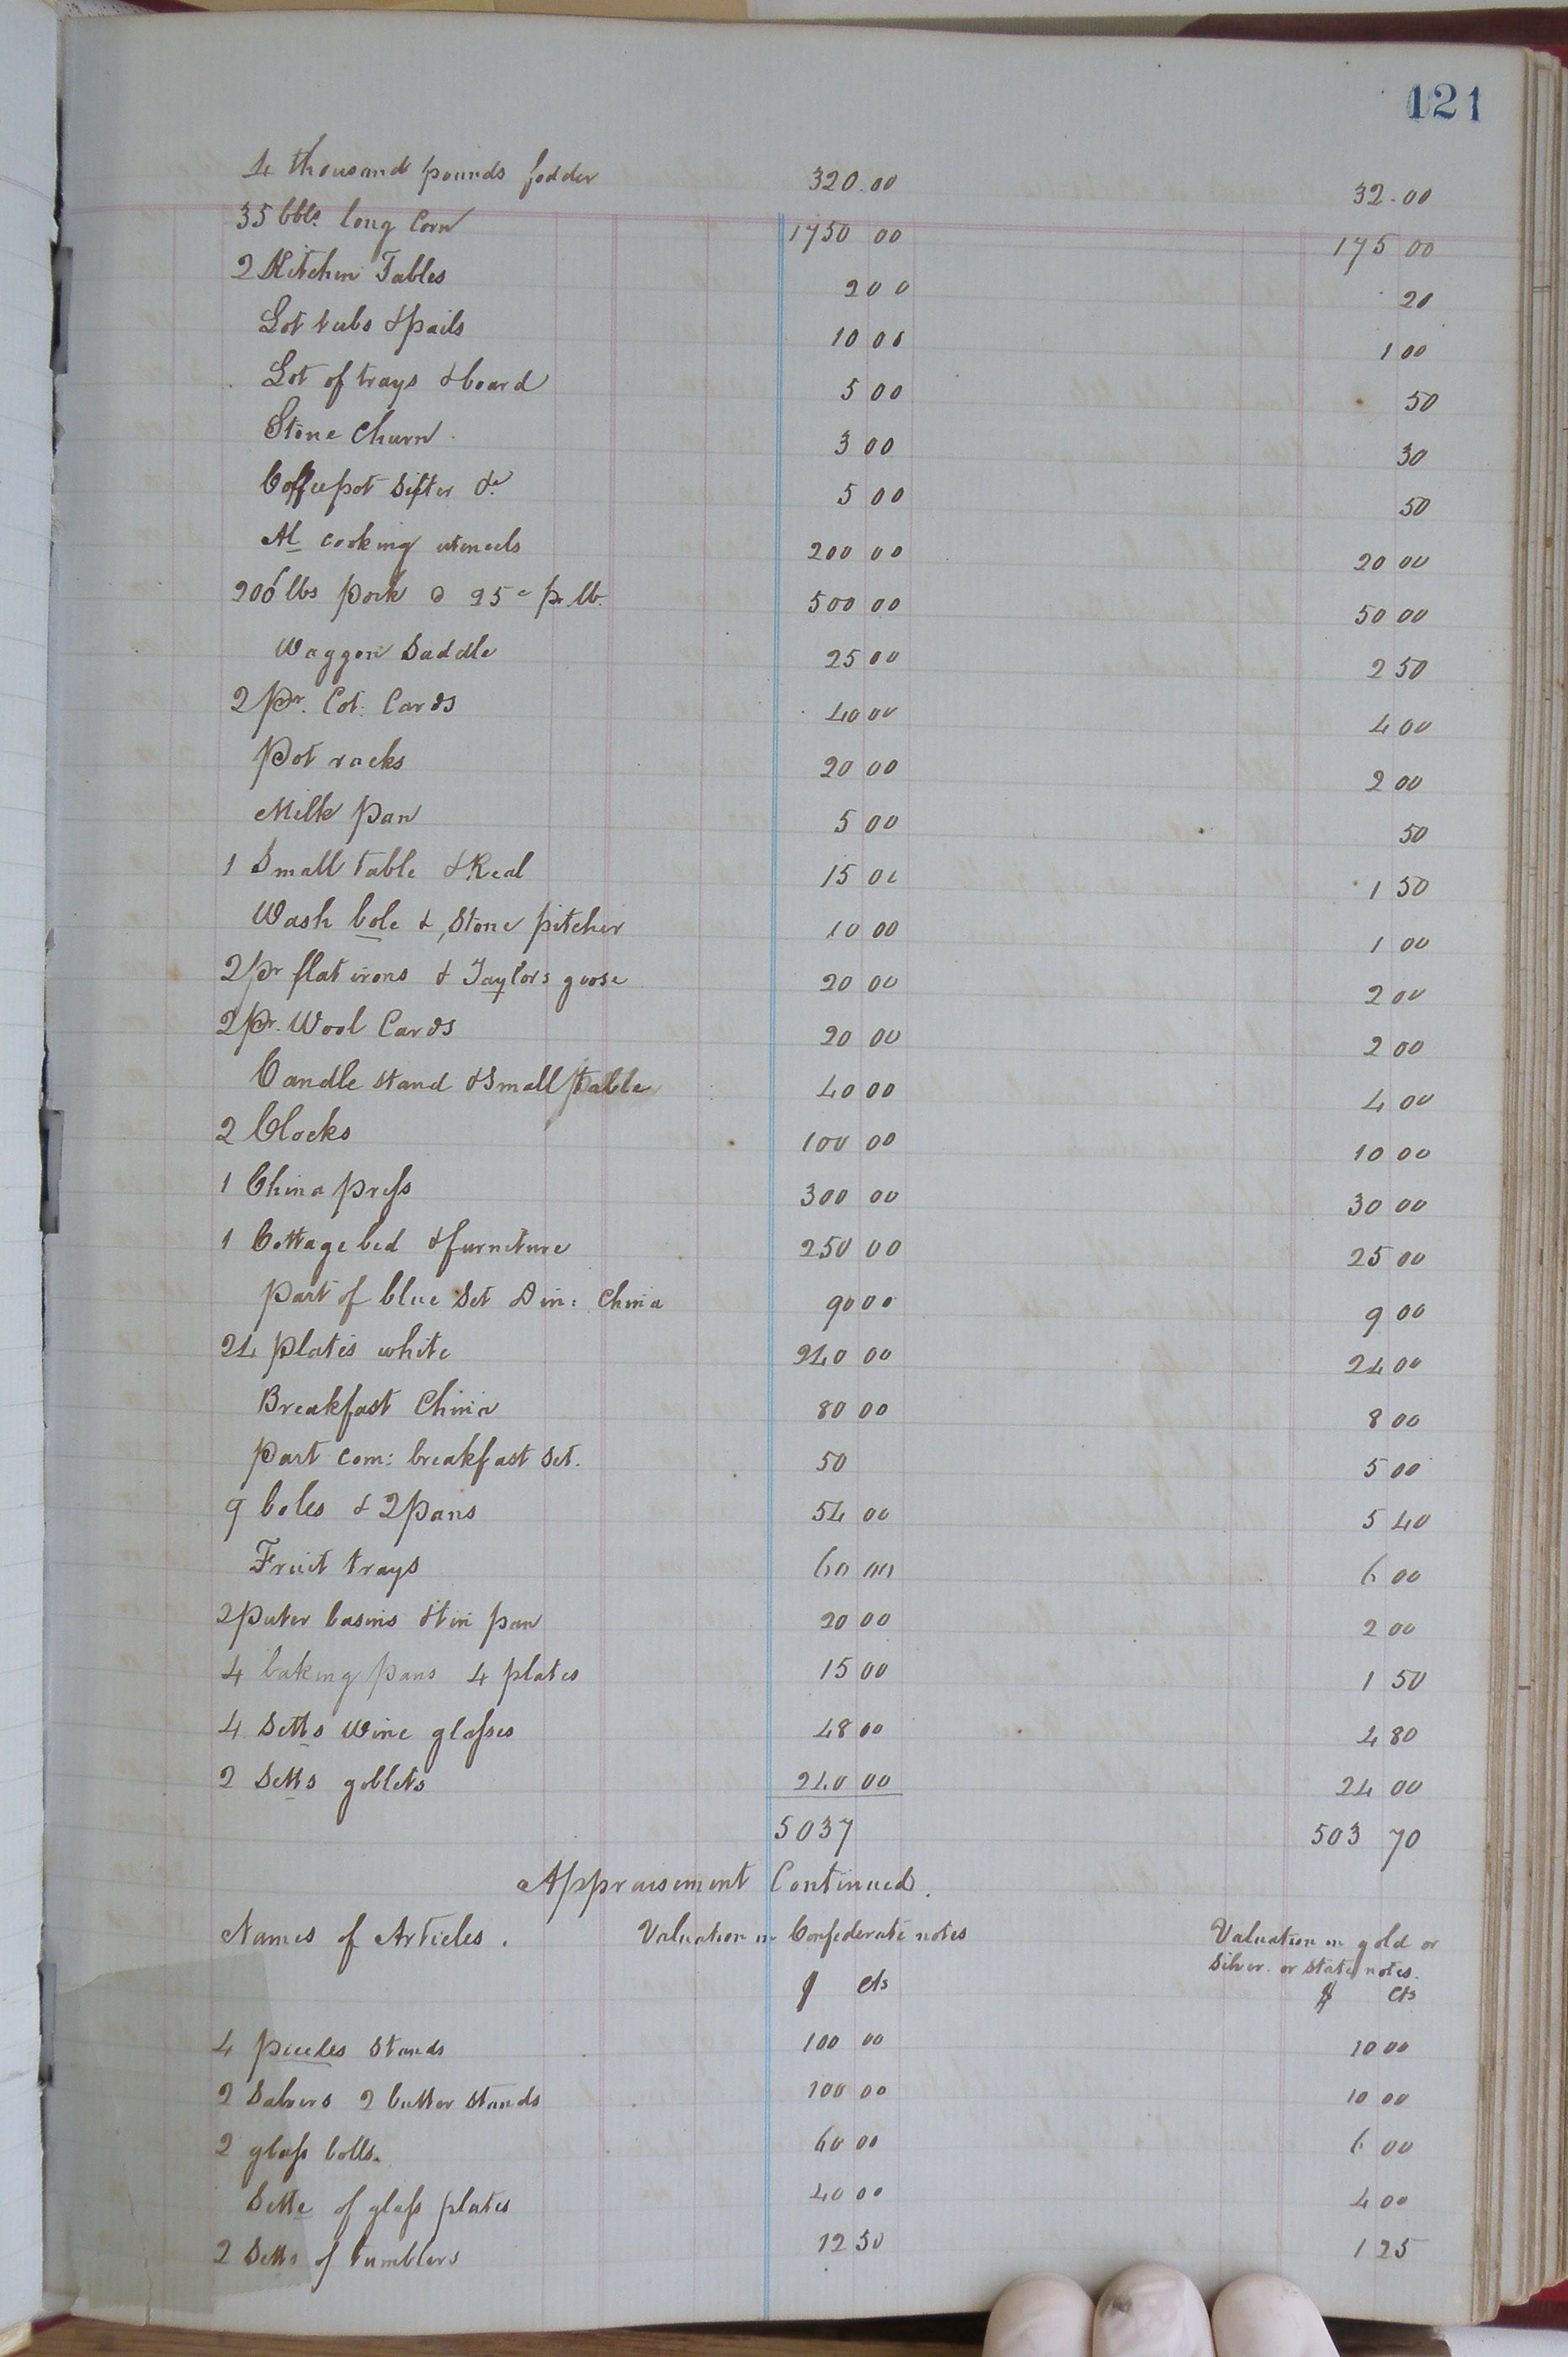 121
4 thousand pounds fodder 320.00 32.00
35 bbls. long Corn 1750 00 175 00
2 Kitchin Tables 2 00 20
Lot tubs & pails 10 00 1 00
Lot of trays & board 5 00 50
Stone Churn 3 00 30
Coffeepot Sifter &c 5 00 50
Al cooking utensels 200 00 20 00
200 lbs pork @ 25c pr lb. 500 00 50 00
Waggon Saddle 25 00 2 50
2 pr. Cot: Cards 40 00 4 00
Pot racks 20 00 2 00
Milk Pan 5 00 50
1 Small table & Real 15 00 1 50
Wash bole & Stone pitcher 10 00 1 00
2 pr flat irons & Taylors goose 20 00 2 00
2 pr. Wool Cards 20 00 2 00
Candle stand & Small table 40 00 4 00
2 Clocks 100 00 10 00
1 China press 300 00 30 00
1 Cottage bed & furniture 250 00 25 00
Part of blue Set Din: China 90 00 9 00
24 plates white 240 00 24 00
Breakfast China 80 00 8 00
Part com: breakfast Set. 50 5 00
9 boles & 2 pans 54 00 5 40
Fruit trays 60 00 6 00
2 puter basins & tin pan 20 00 2 00
4 baking pans 4 plates 15 00 1 50
4 Setts Wine glasses 48 00 4 80
2 Setts goblets 240 00 24 00
5037 503 70
Appraisment Continued.
Names of Articles. Valuation in Confederate notes Valuation in gold or
Silver or State notes.
$ cts $ cts
4 stands 100 00 10 00
2 Salvers 2 butter stands 100 00 10 00
2 glass bolls. 60 00 6 00
Sette of glass plates 40 00 4 00
2 Setts of tumblers 12 50 1 25